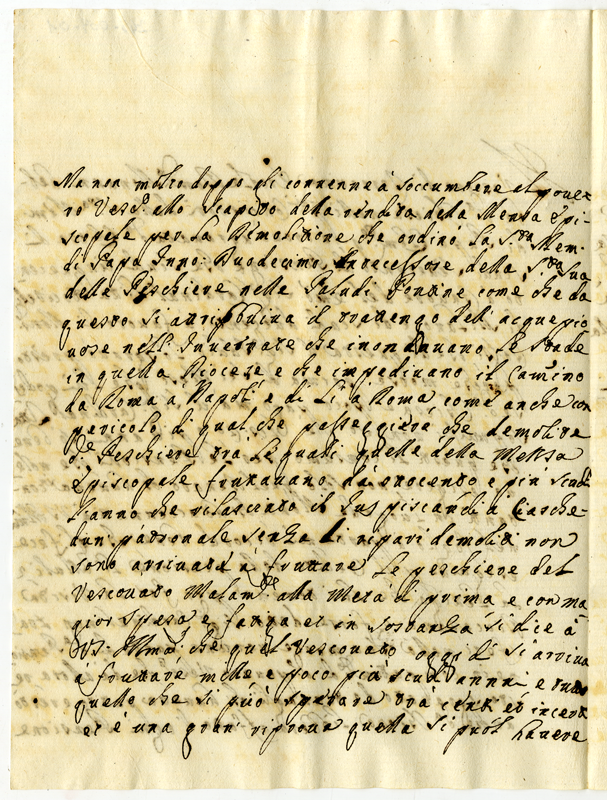 Ma non molto doppo gli convenne à soccumbere el pove-
ro Vesc.º allo scapito della rendita della Mensa Epi-
scopale per la Demolitione che ordinò la S.ta Mem.
di Papa Inno: Duodecimo Antecessore della S.tà Sua
delle Peschiere nelle Paludi Pontine come che da
questo si attribuiva il trattengo dell' acque pio
vose nell' Invernate che inondavano le strade
in quella Diocese e che impedivano il camino
da Roma à Napoli e di li à Roma come anche con
pericolo di qual che passeggiere che demolite
d.e Peschiere trà le quali quelle della Mensa
Episcopale fruttavano da trocento e più scudi
l'anno che rilasciato il Jus piscandi à ciasche-
dun patronale senza li ripari demoliti non
sono arrivate à fruttare le peschiere del
Vescovato Malam.te alla metà di prima e con ma
gior spesa e fatiga et in sostanza si dice à
VS. Illma che quel Vescovato oggi dì si arriva
à fruttare mille e poco più scudi annui e tutto
quello che si può sperare trà certi et incerti
et è una gran riprova quella si può havere